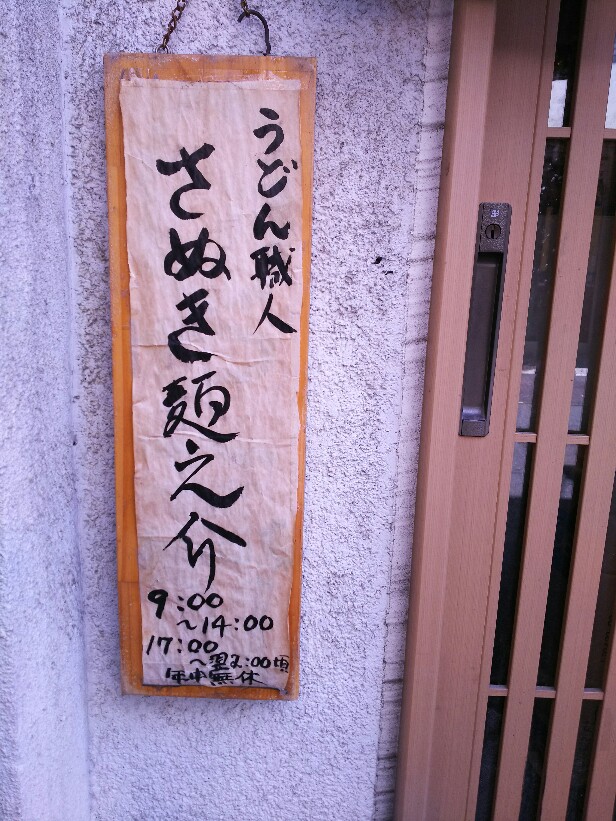 うどん職人
さぬき麺之介
9:00
～14:00
17:00
～翌2:00頃
年中無休